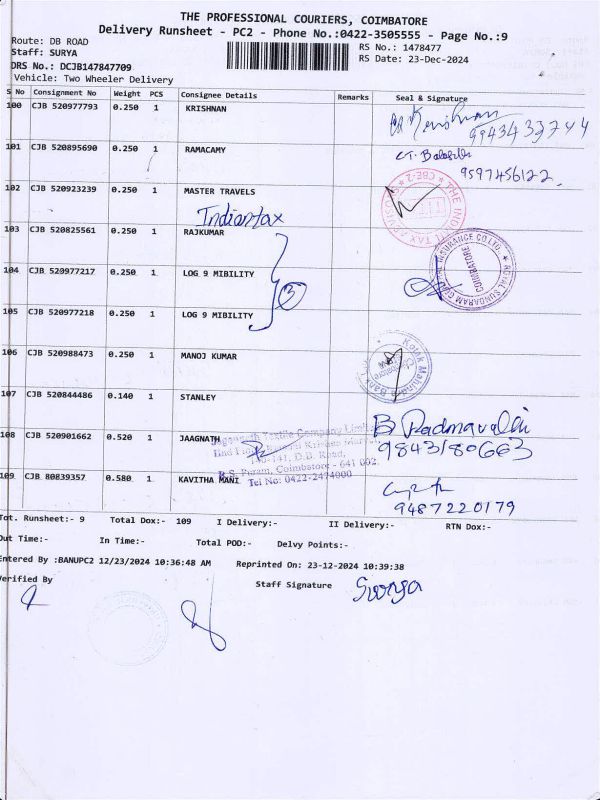 THE PROFESSIONAL COURIERS, COIMBATORE
Delivery Runsheet - PC2 - Phone No.:0422-3505555 - Page No.:9
Route: DB ROAD
Staff: SURYA
RS No.: 1478477
DRS No.: DCJB147847709
RS Date: 23-Dec-2024
Vehicle: Two Wheeler Delivery
S No Consignment No Weight PCS Consignee Details Remarks Seal & Signature
100 CJB 520977793 0.250 1 KRISHNAN
9943433744
101 CJB 520895690 0.250 1 RAMACAMY
9597456122
102 CJB 520923239 0.250 1 MASTER TRAVELS
Indiantax
103 CJB 520825561 0.250 1 RAJKUMAR
104 CJB 520977217 0.250 1 LOG 9 MIBILITY
3
105 CJB 520977218 0.250 1 LOG 9 MIBILITY
ROYAL SUNDARAM GENERAL INSURANCE CO LTD.
COIMBATORE
106 CJB 520988473 0.250 1 MANOJ KUMAR
Kotak Mahindra Bank
107 CJB 520844486 0.140 1 STANLEY
108 CJB 520901662 0.520 1 JAAGNATH
B Padmavathi
9843180663
R.S. Puram, Coimbatore - 641 002.
Tel No: 0422-2474000
109 CJB 80839357 0.580 1 KAVITHA MANI
9487220179
Tot. Runsheet:- 9 Total Dox:- 109 I Delivery:- II Delivery:- RTN Dox:-
Out Time:- In Time:- Total POD:- Delvy Points:-
Entered By :BANUPC2 12/23/2024 10:36:48 AM Reprinted On: 23-12-2024 10:39:38
Verified By
Staff Signature Surya